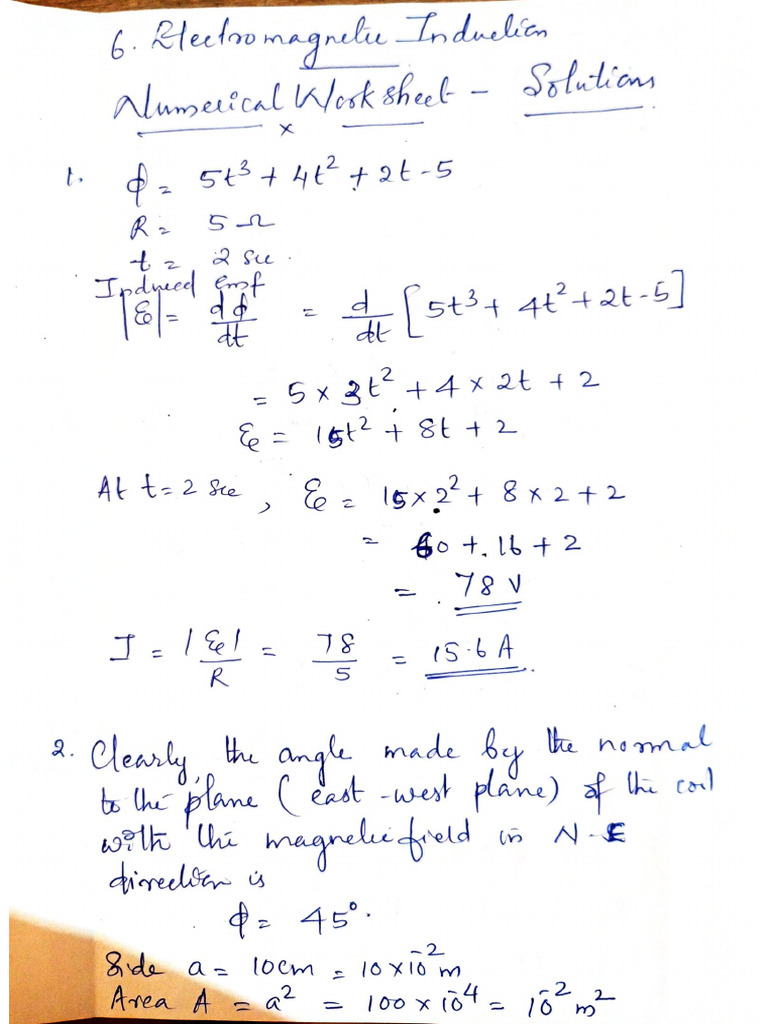 6. Electromagnetic Induction
Numerical Worksheet - Solutions
x
1. ϕ = 5t³ + 4t² + 2t - 5
R = 5 Ω
t = 2 sec.
Induced emf
|ℰ| = dϕ/dt = d/dt [5t³ + 4t² + 2t - 5]
= 5 × 3t² + 4 × 2t + 2
ℰ = 15t² + 8t + 2
At t = 2 sec, ℰ = 15 × 2² + 8 × 2 + 2
= 60 + 16 + 2
= 78 V
I = |ℰ|/R = 78/5 = 15.6 A
2. Clearly, the angle made by the normal
to the plane (east-west plane) of the coil
with the magnetic field in N-E
direction is
ϕ = 45°.
Side a = 10cm = 10 × 10⁻² m
Area A = a² = 100 × 10⁻⁴ = 10⁻² m²